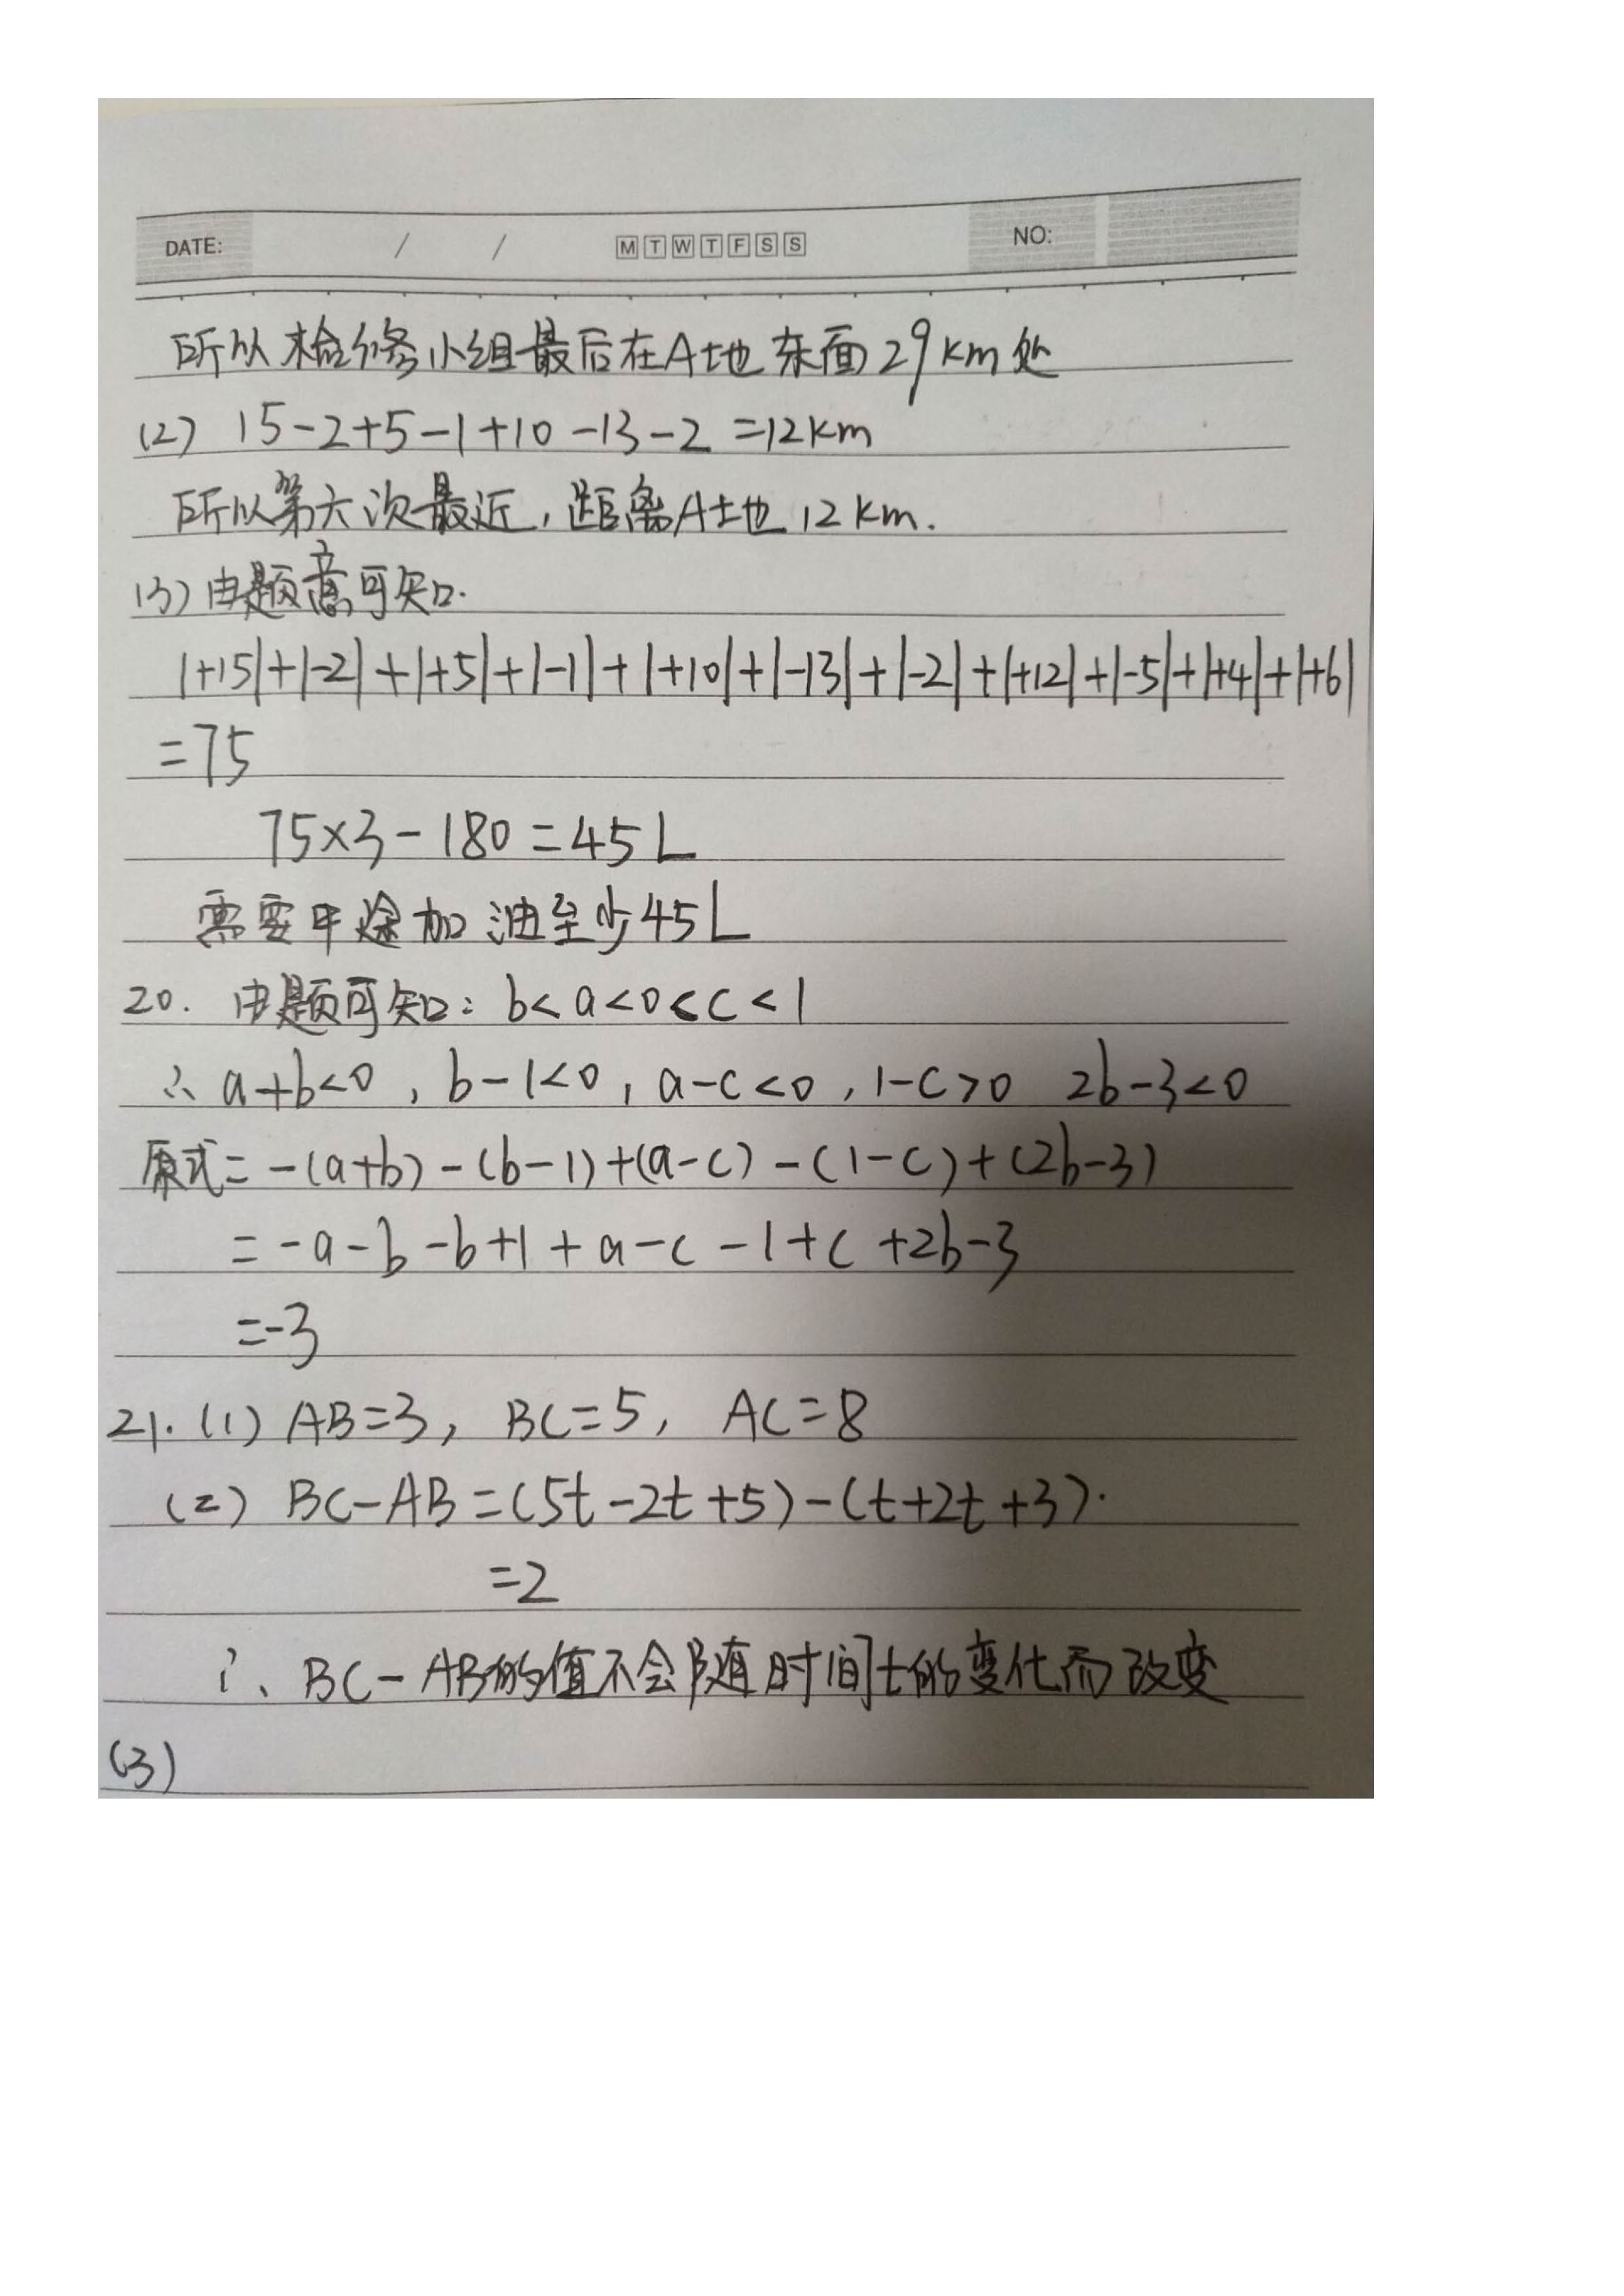 DATE: / / M T W T F S S NO:
所以检修小组最后在A地东面29km处
(2) 15-2+5-1+10-13-2=12km
所以第六次最近,距离A地12km.
(3)由题意可知.
|+15|+|-2|+|+5|+|-1|+|+10|+|-13|+|-2|+|+12|+|-5|+|+4|+|+6|
=75
75×3-180=45L
需要中途加油至少45L
20. 由题可知: b<a<0<c<1
∴ a+b<0, b-1<0, a-c<0, 1-c>0 2b-3<0
原式=-(a+b)-(b-1)+(a-c)-(1-c)+(2b-3)
=-a-b-b+1+a-c-1+c+2b-3
=-3
21. (1) AB=3, BC=5, AC=8
(2) BC-AB=(5t-2t+5)-(t+2t+3).
=2
∴ BC-AB的值不会随时间t的变化而改变
(3)